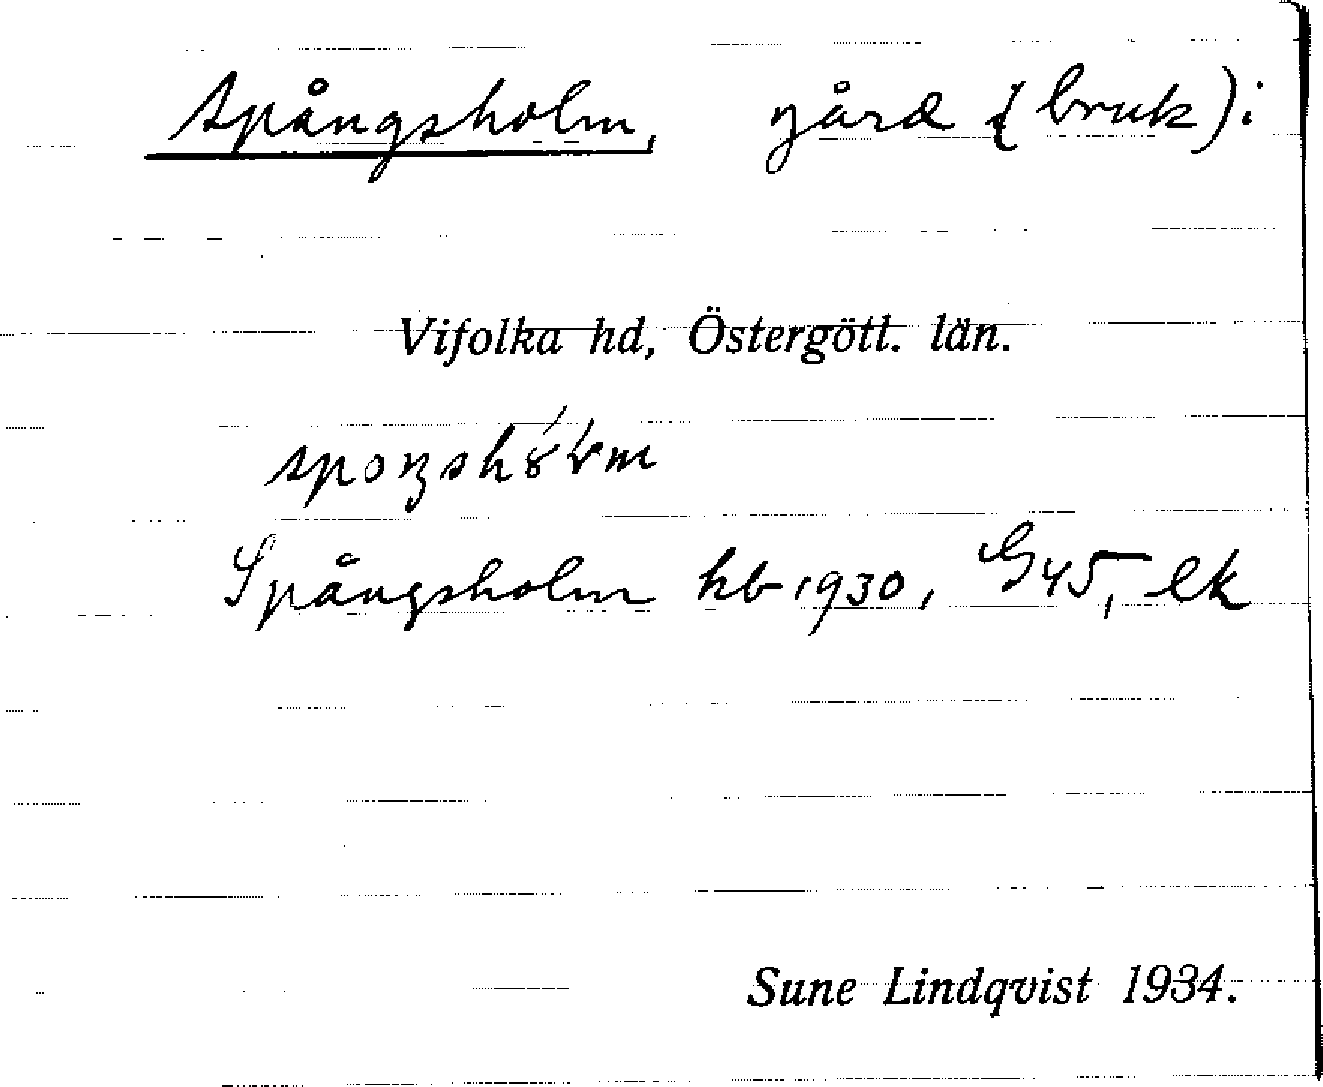 Spångsholm, gård (bruk) i
Vifolka hd, Östergötl. län.
Spångsholm hb 1930, G45, ek
Sune Lindqvist 1934.